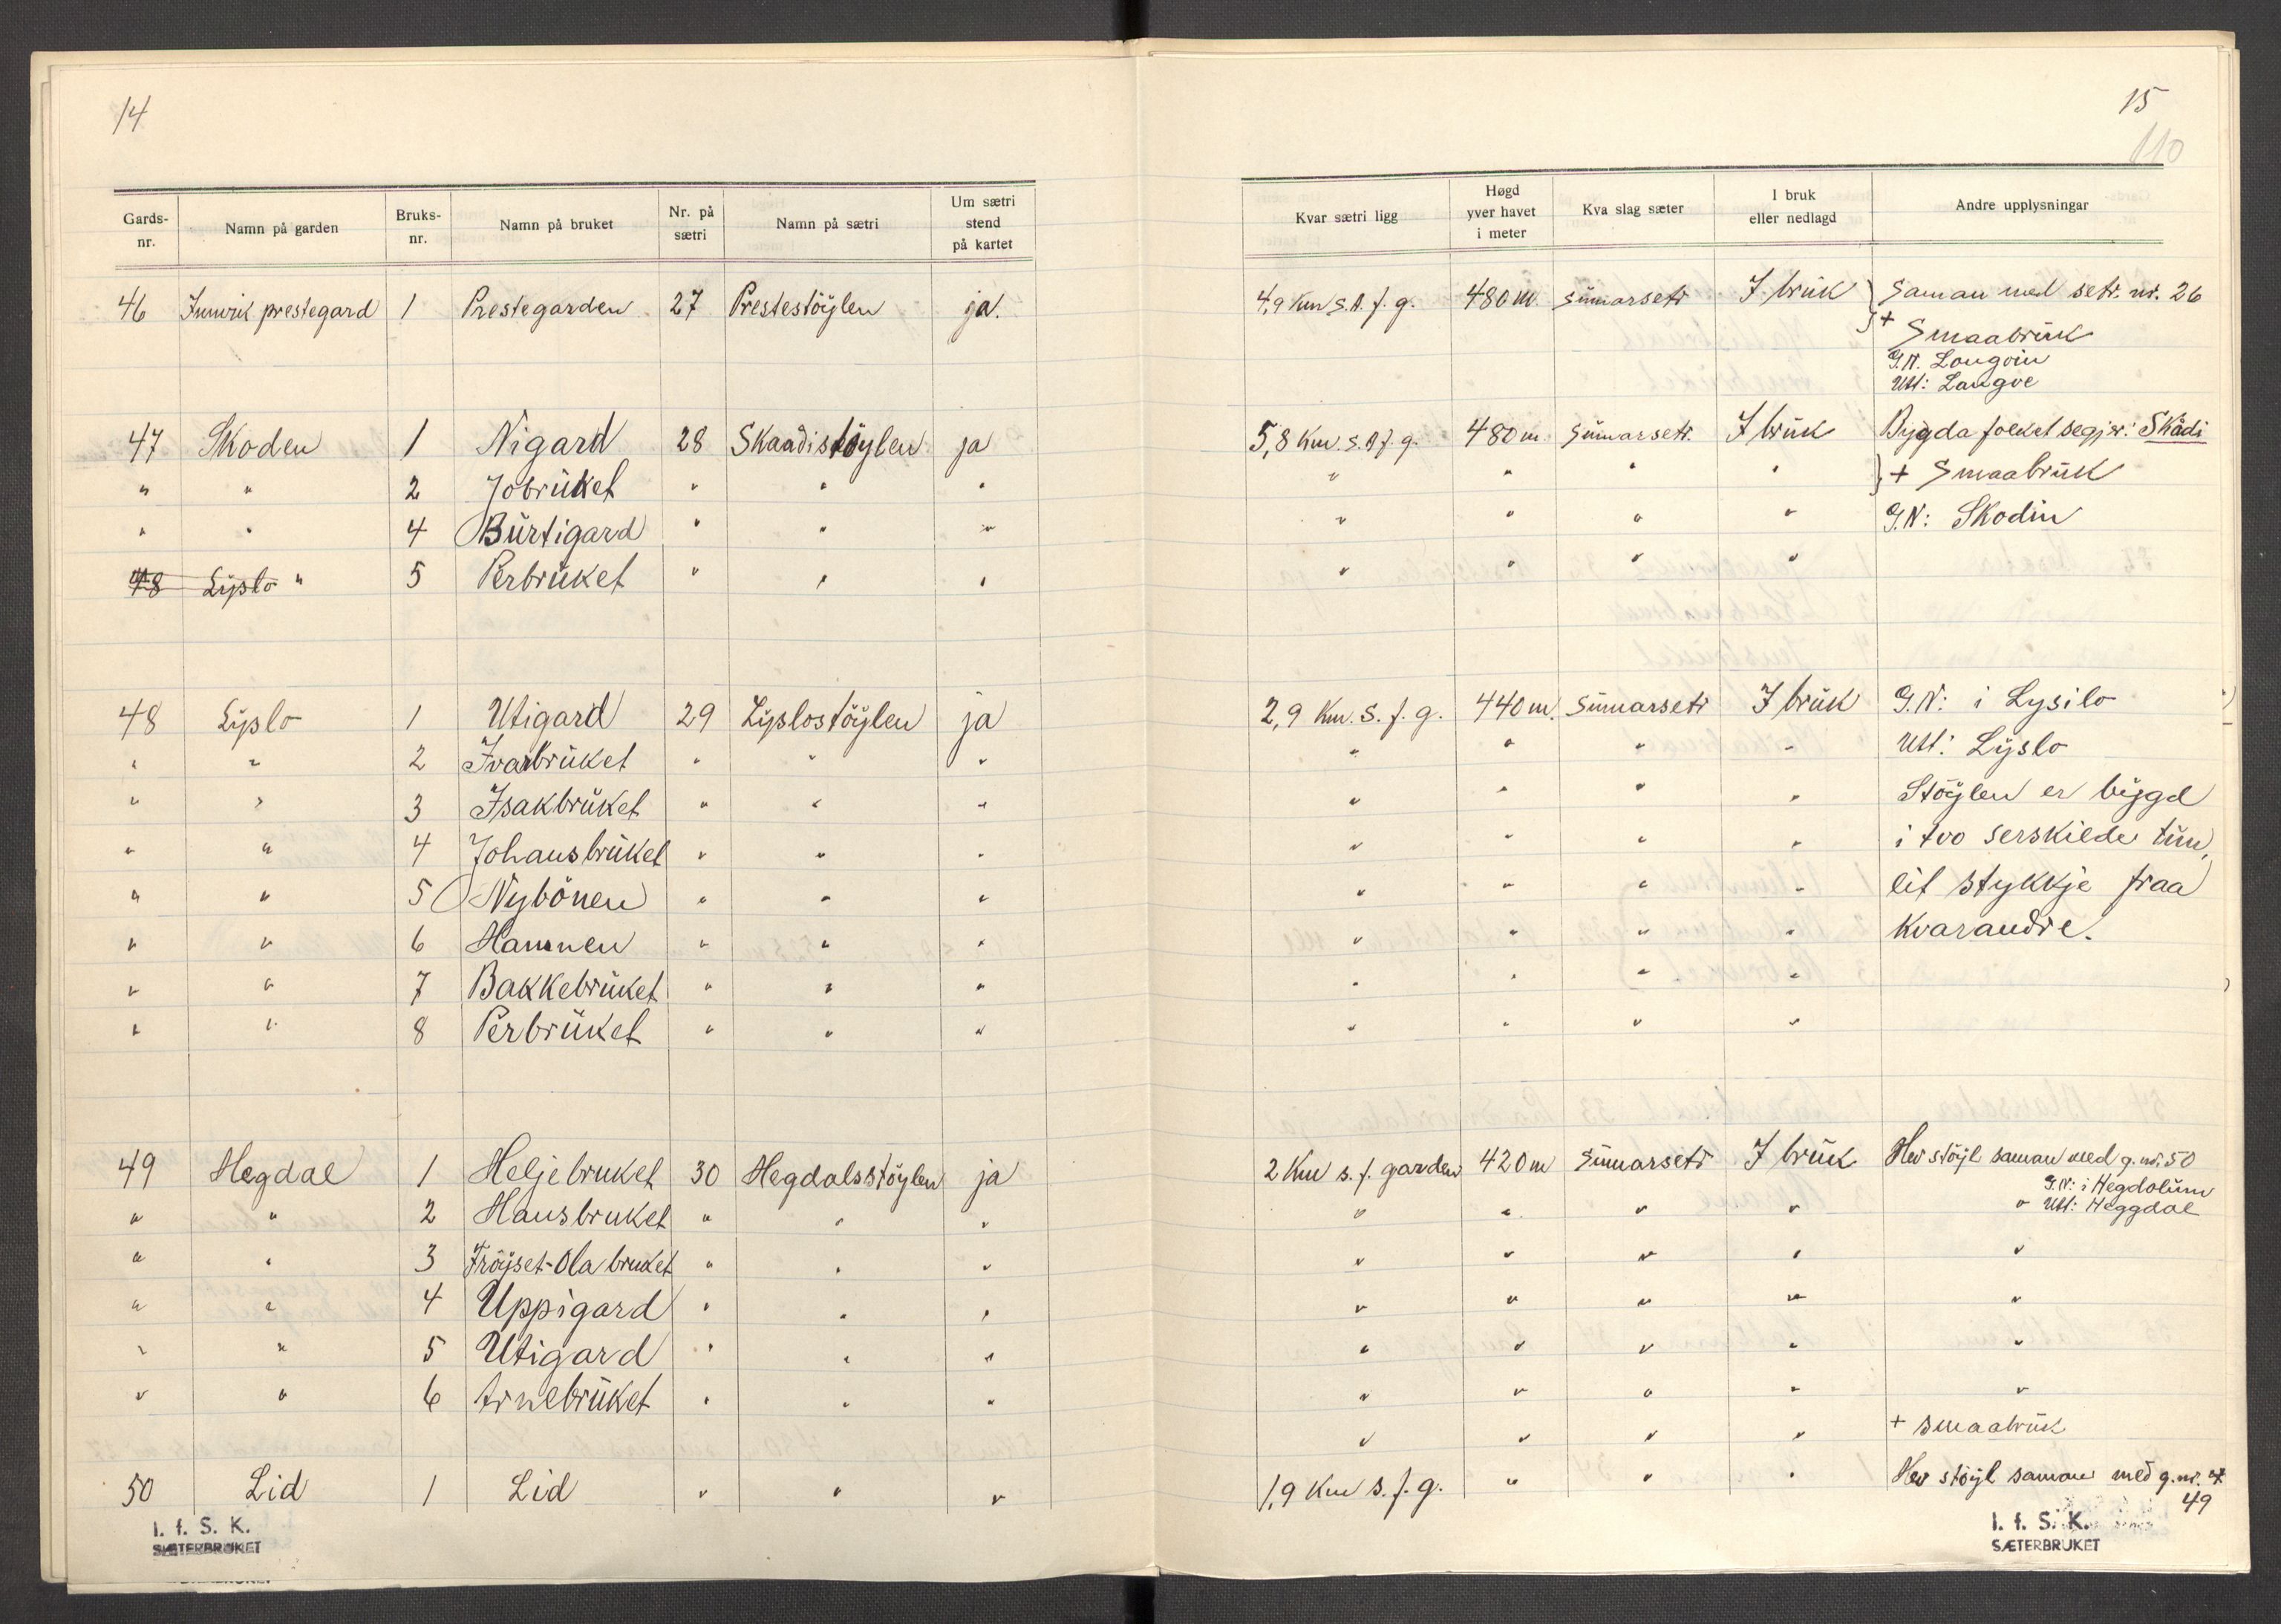 14
Gards-nr. Namn på garden Bruks-nr. Namn på bruket Nr. på sætri Namn på sætri Um sætri stend på kartet
46 Innvik prestegard 1 Prestegarden 27 Prestestöylen ja.
47 Skoden 1 Nigard 28 Skaadistöylen ja
" " 2 Jobruket " " "
" " 4 Burtigard " " "
48 Lyslo " 5 Perbruket " " "
48 Lyslo 1 Utigard 29 Lyslostöylen ja
" " 2 Ivarbruket " " "
" " 3 Isakbruket " " "
" " 4 Johansbruket " " "
" " 5 Nybönen " " "
" " 6 Hamnen " " "
" " 7 Bakkebruket " " "
" " 8 Perbruket " " "
49 Hegdal 1 Heljebruket 30 Hegdalsstöylen ja
" " 2 Hansbruket " " "
" " 3 Fröyset-Ola bruket " " "
" " 4 Uppigard " " "
" " 5 Utigard " " "
" " 6 Arnebruket " " "
50 Lid 1 Lid " " "
I. f. S. K.
SÆTERBRUKET
15
110
Kvar sætri ligg Høgd yver havet i meter Kva slag sæter I bruk eller nedlagd Andre upplysningar
4,9 km S.A. f. g. 480 m sumarsetr I bruk Saman med setr. nr. 26
+ Smaabruk
G.N. Langvin
Utt: Langve
5,8 Km. S.A f. g. 480 m. sumarsetr. I bruk Bygda folket segjer: Skådi
" " " " + Smaabruk
" " " " G.N: Skodin
" " " "
2,9 Km. S. f. g. 440 m. sumarsetr I bruk G.N: i Lysilo
" " " " Utt: Lyslo
" " " " Stöylen er bygd
" " " " i tvo serskilde tun,
" " " " eit stykkje fraa
" " " " kvarandre.
" " " "
" " " "
2 Km s. f. garden 420 m sumarsetr I bruk Hev stöyl saman med g. nr. 50
G.N: i Hegdolum
" " " " " Utt: Heggdal
" " " " "
" " " " "
" " " " "
" " " " "
" " " " + smaabruk
1,9 Km s. f. g. " " " Hev stöyl saman med g. nr.
49
I. f. S. K.
SÆTERBRUKET